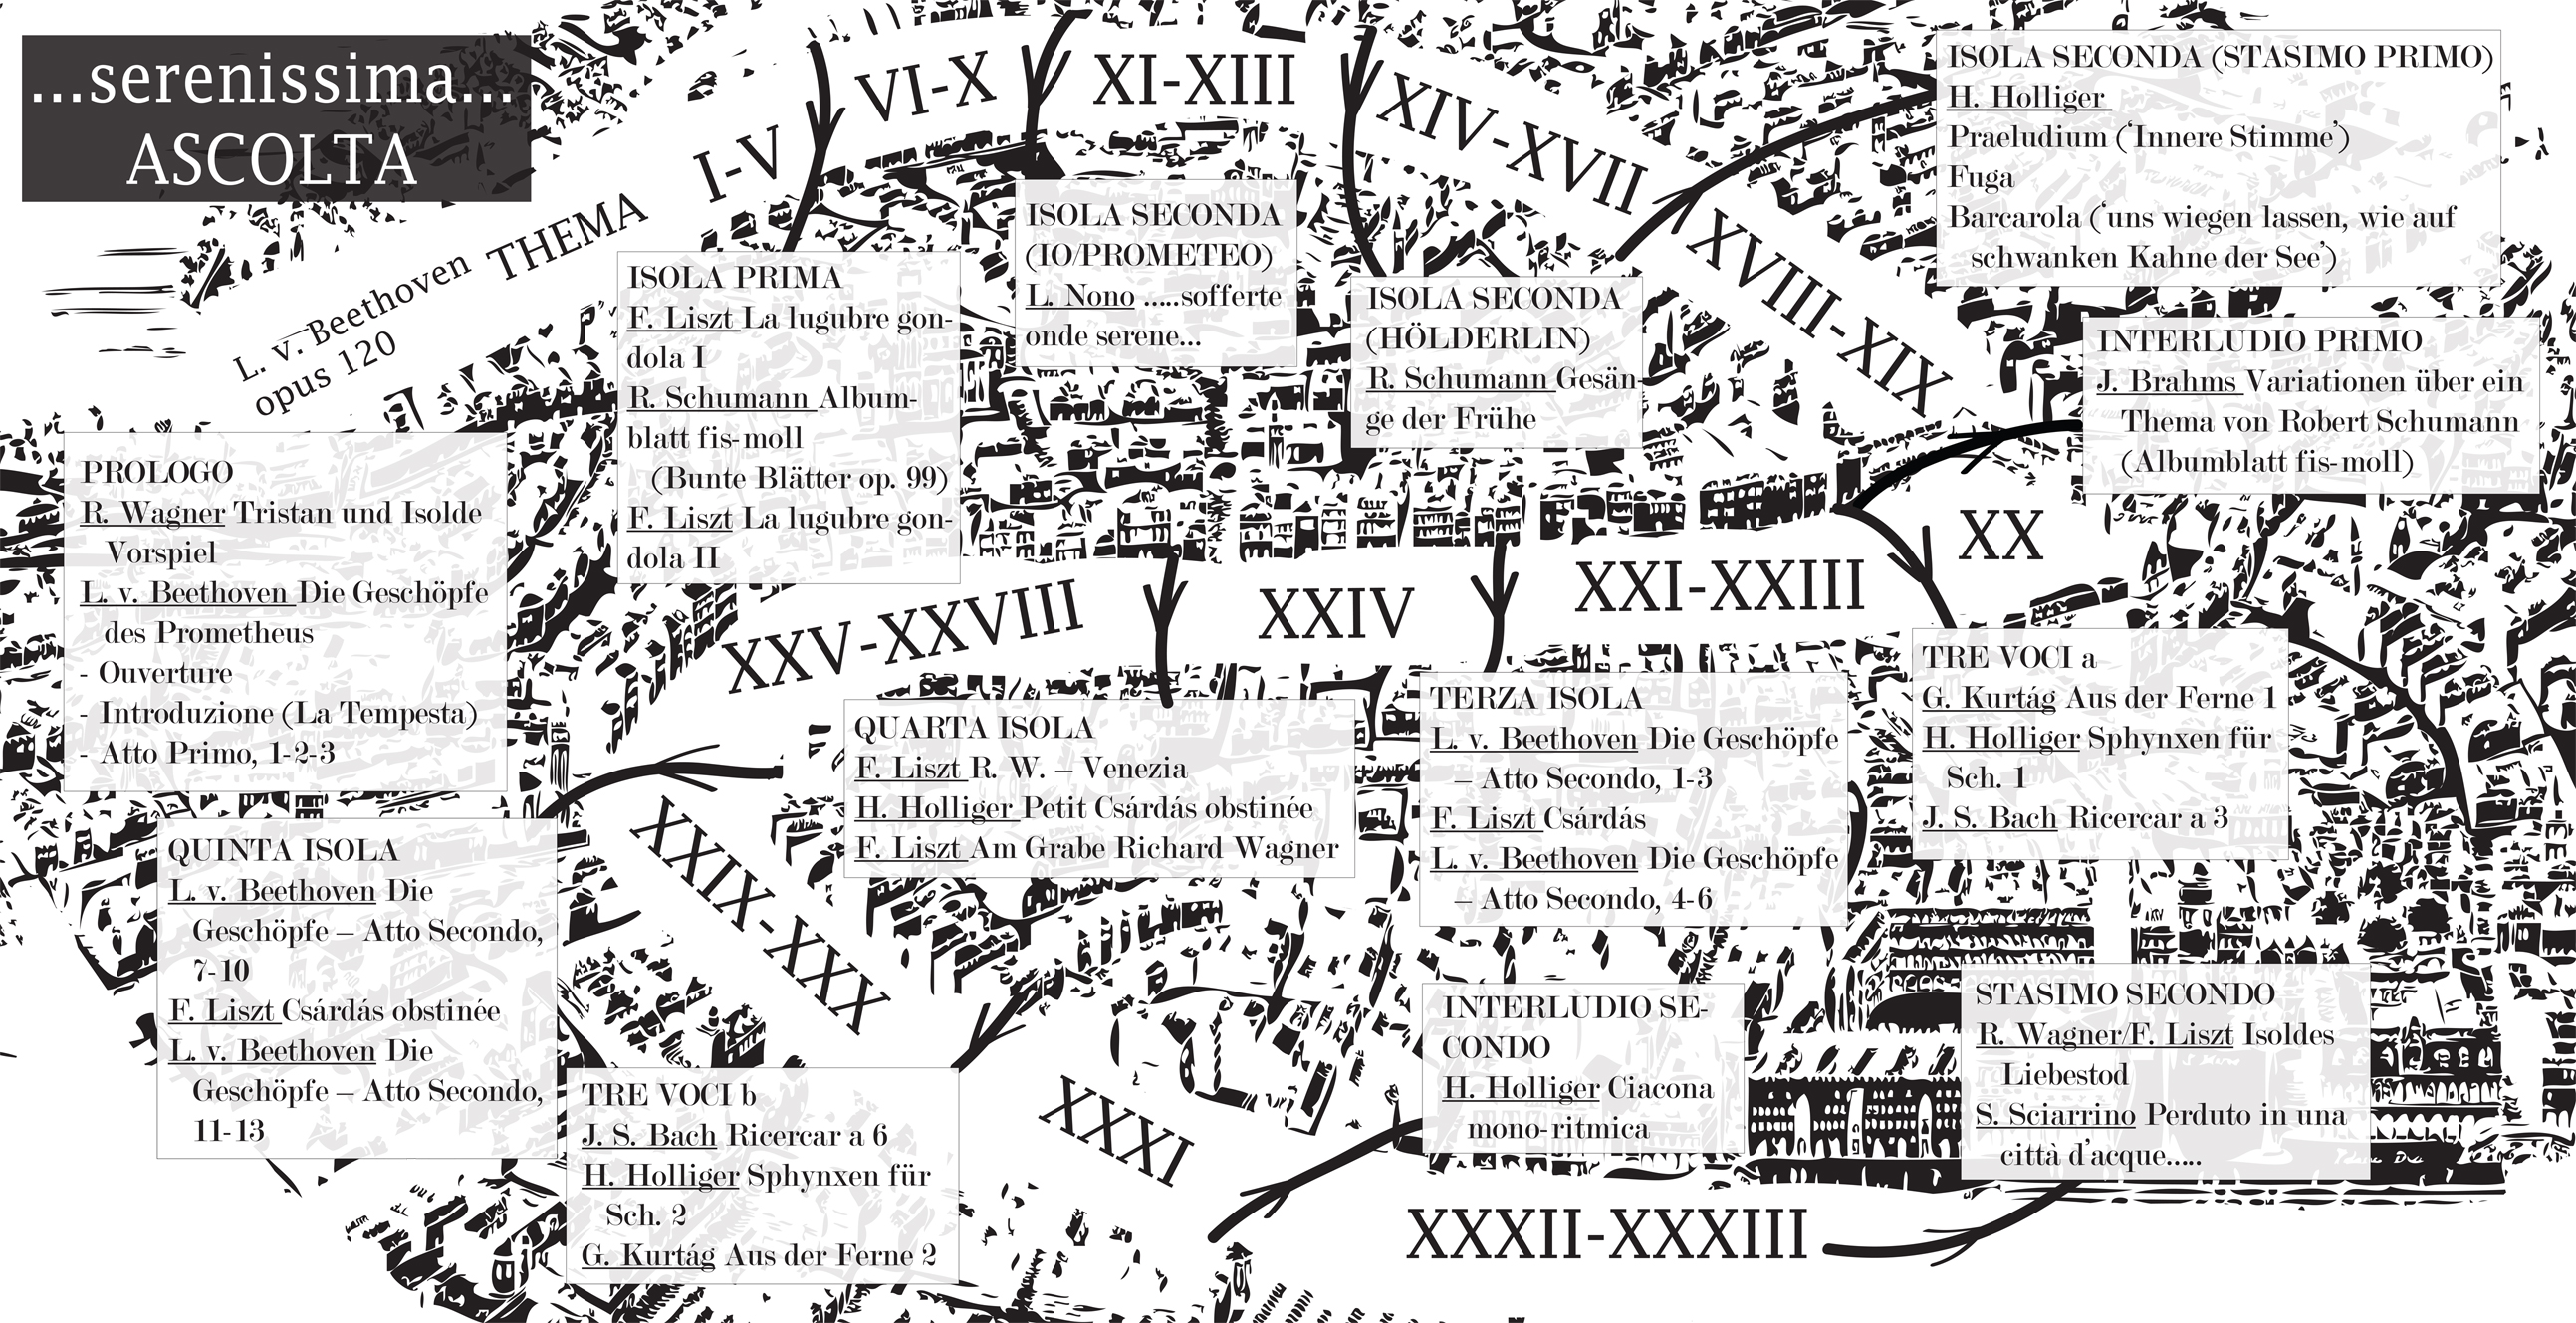 ...serenissima...
ASCOLTA
L. v. Beethoven THEMA
opus 120
I-V
VI-X
XI-XIII
XIV-XVII
XVIII-XIX
XX
XXI-XXIII
XXIV
XXV-XXVIII
XXIX-XXX
XXXI
XXXII-XXXIII
PROLOGO
R. Wagner Tristan und Isolde
Vorspiel
L. v. Beethoven Die Geschöpfe
des Prometheus
- Ouverture
- Introduzione (La Tempesta)
- Atto Primo, 1-2-3
ISOLA PRIMA
F. Liszt La lugubre gon-
dola I
R. Schumann Album-
blatt fis-moll
(Bunte Blätter op. 99)
F. Liszt La lugubre gon-
dola II
ISOLA SECONDA
(IO/PROMETEO)
L. Nono .....sofferte
onde serene...
ISOLA SECONDA
(HÖLDERLIN)
R. Schumann Gesän-
ge der Frühe
ISOLA SECONDA (STASIMO PRIMO)
H. Holliger
Praeludium (‘Innere Stimme’)
Fuga
Barcarola (‘uns wiegen lassen, wie auf
schwanken Kahne der See’)
INTERLUDIO PRIMO
J. Brahms Variationen über ein
Thema von Robert Schumann
(Albumblatt fis-moll)
TRE VOCI a
G. Kurtág Aus der Ferne 1
H. Holliger Sphynxen für
Sch. 1
J. S. Bach Ricercar a 3
TERZA ISOLA
L. v. Beethoven Die Geschöpfe
– Atto Secondo, 1-3
F. Liszt Csárdás
L. v. Beethoven Die Geschöpfe
– Atto Secondo, 4-6
QUARTA ISOLA
F. Liszt R. W. – Venezia
H. Holliger Petit Csárdás obstinée
F. Liszt Am Grabe Richard Wagner
QUINTA ISOLA
L. v. Beethoven Die
Geschöpfe – Atto Secondo,
7-10
F. Liszt Csárdás obstinée
L. v. Beethoven Die
Geschöpfe – Atto Secondo,
11-13
TRE VOCI b
J. S. Bach Ricercar a 6
H. Holliger Sphynxen für
Sch. 2
G. Kurtág Aus der Ferne 2
INTERLUDIO SE-
CONDO
H. Holliger Ciacona
mono-ritmica
STASIMO SECONDO
R. Wagner/F. Liszt Isoldes
Liebestod
S. Sciarrino Perduto in una
città d’acque.....